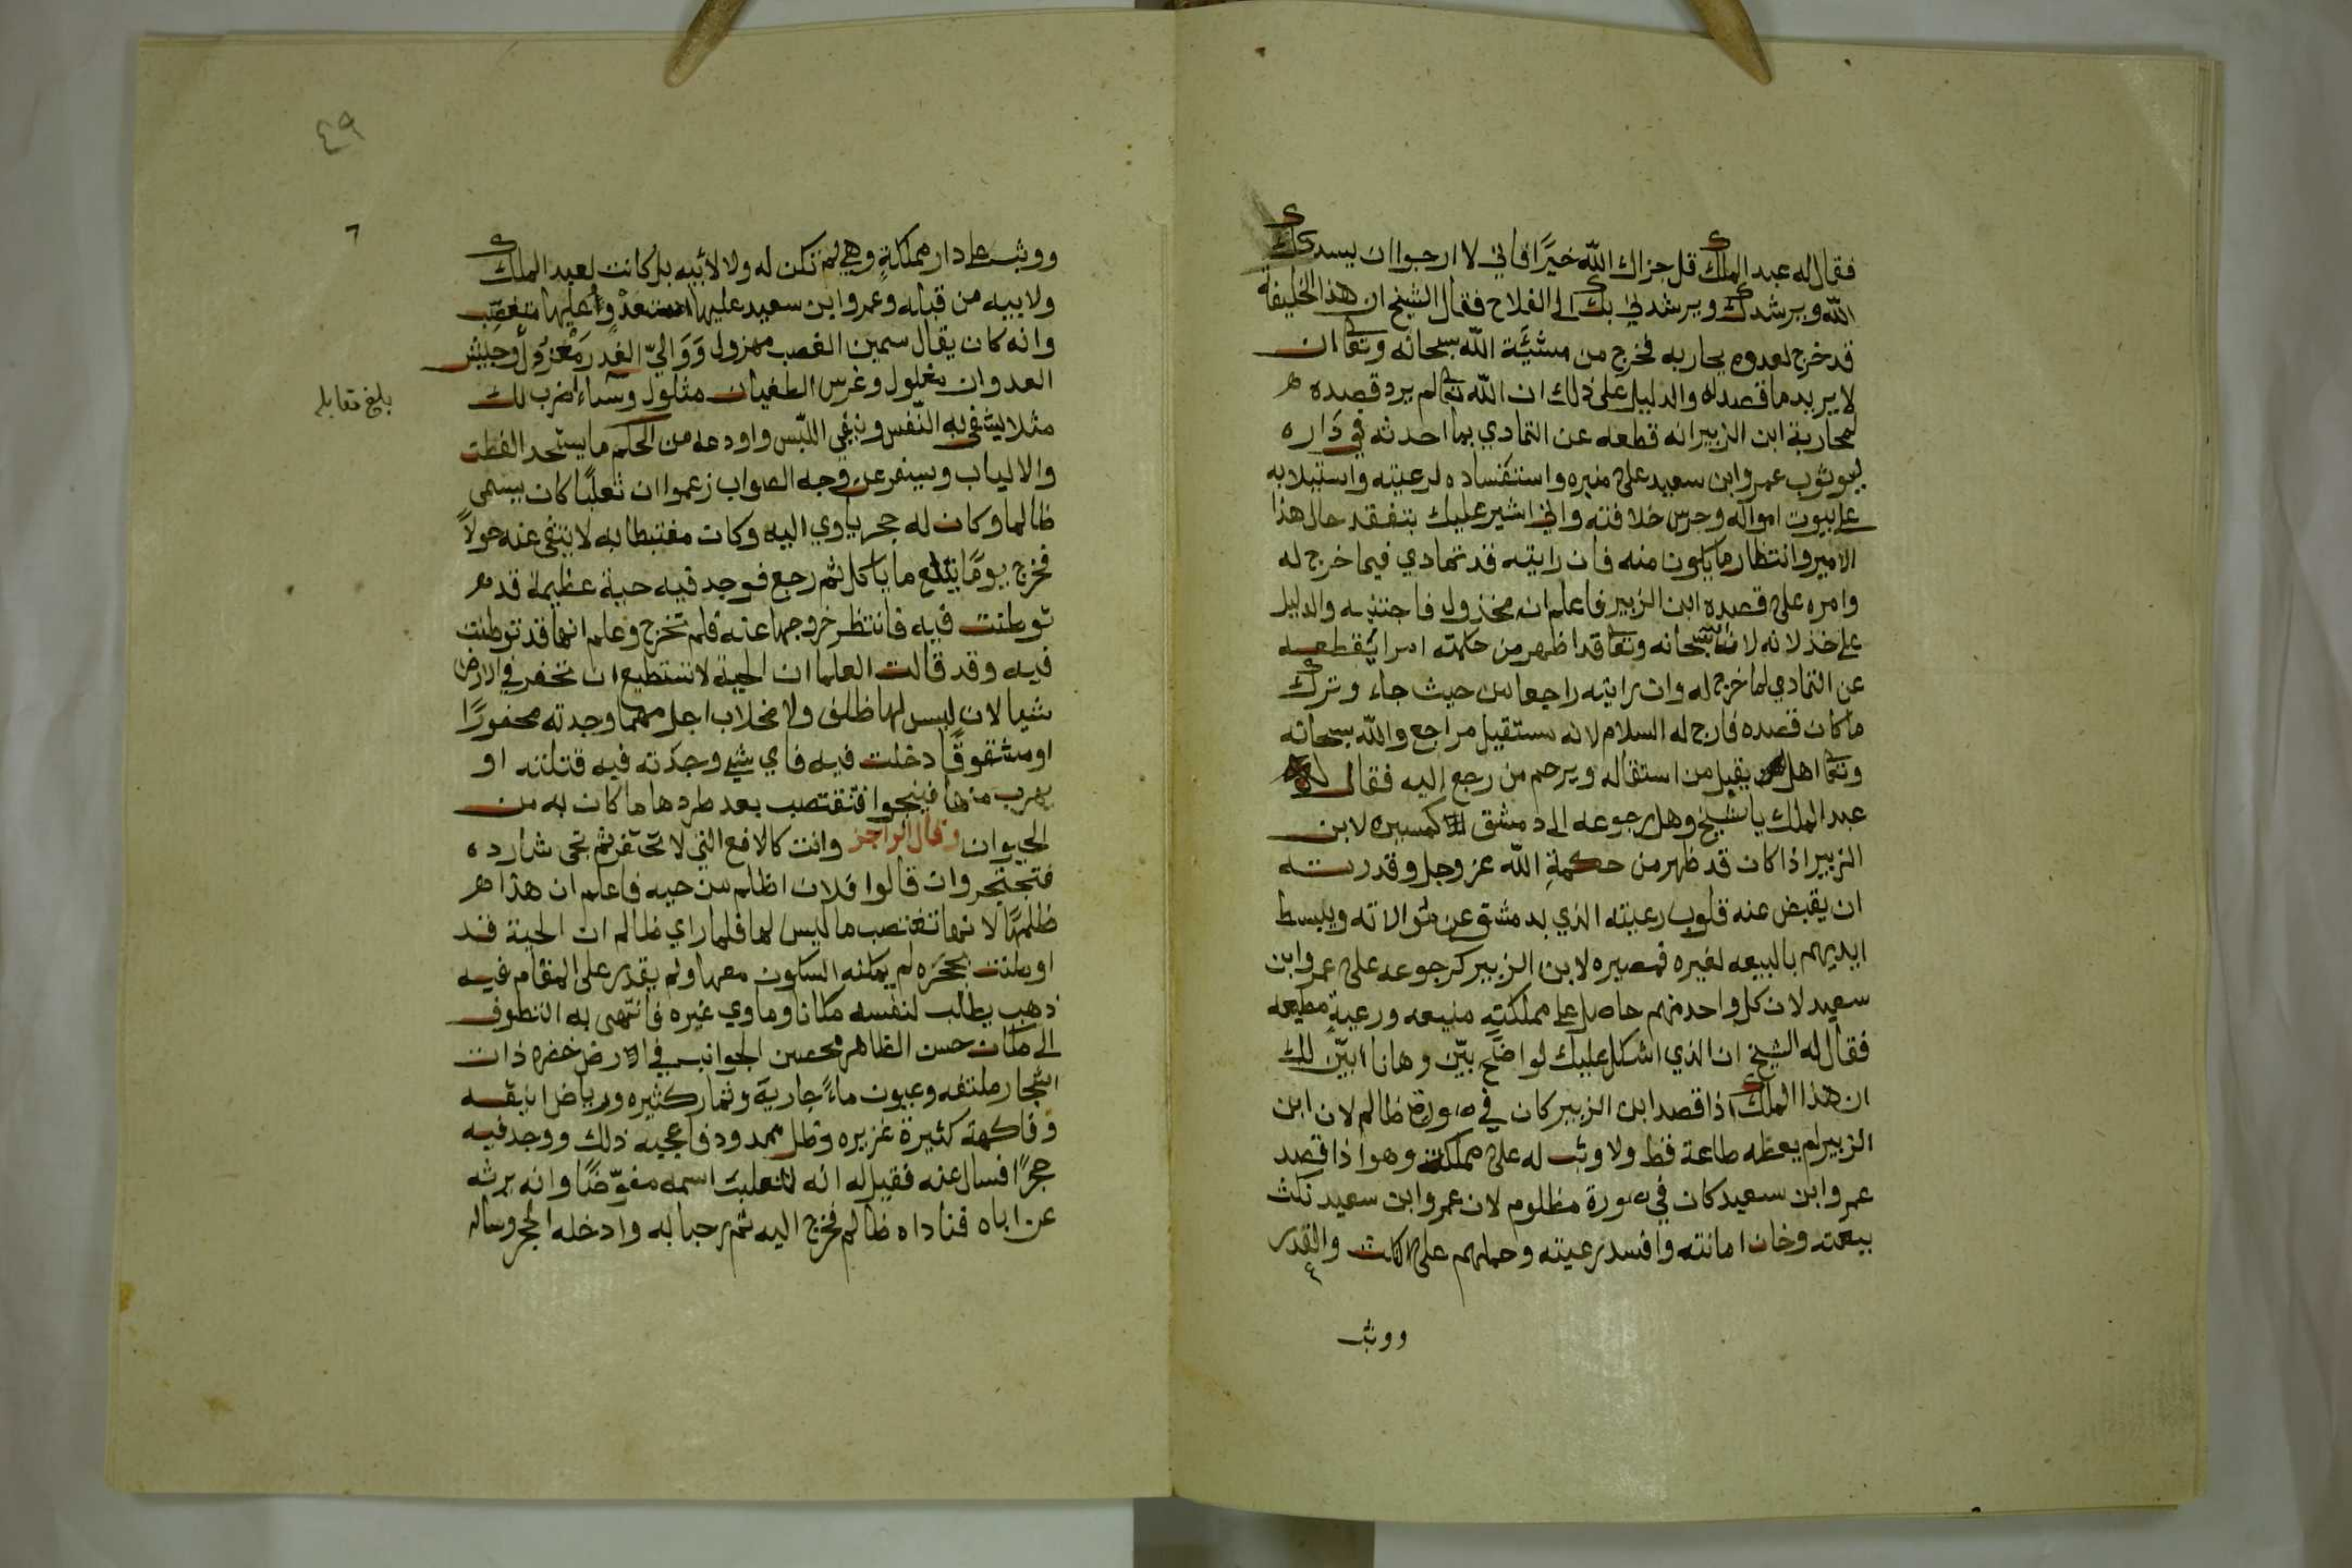 فقال له عبد الملك قل جزاك الله خيرًا فاني لا ارجوا ان يسددك
الله ويرشدك ويرشدني بك الى الفلاح فقال الشيخ ان هذا الخليفة
قد خرج لعدوه يحاربه فخرج من مشيّة الله سبحانه وتعالى ان
لا يريد ما قصد له والدليل على ذلك ان الله تعالى لم يرد قصده
لمحاربة ابن الزبير انه قطعه عن التمادي بما احدثه في داره
بوثوب عمروابن سعيد على منبره واستفساده لرعيته واستيلابه
على بيوت امواله وحرس خلافته واني اشير عليك بتفقد حال هذا
الامير وانتظار ما يكون منه فان رايته قد تمادي فيما خرج له
وامره على قصده ابن الزبير فاعلم انه مخذول فاجتنبه والدليل
على خذلانه لانه سبحانه وتعالى قد اظهر من حكمته امرا يقطعه
عن التمادي لما خرج له وان رايته راجعا من حيث جاء وترك
ما كان قصده فارج له السلام لانه مستقيل مراجع والله سبحانه
وتعالى اهل يقيل من استقاله ويرحم من رجع اليه فقال له
عبد الملك يا شيخ وهل رجوعه الى دمشق الا كمسيره لابن
الزبير اذا كان قد ظهر من حكمة الله عز وجل وقدرته
ان يقبض عنه قلوب رعيته الذي بدمشق عن موالاته ويبسط
ايديهم بالبيعه لغيره فمصيره لابن الزبير كرجوعه على عمروابن
سعيد لان كل واحد منهم حاصل على مملكته منيعه ورعية مطيعه
فقال له الشيخ ان الذي اشكل عليك لواضح بيّن وها نا ابيّن لك
ان هذا الملك اذا قصد ابن الزبير كان في صورة ظالم لان ابن
الزبير لم يعطه طاعة قط ولا وثب له على مملكة وهو اذا قصد
عمروابن سعيد كان في صورة مظلوم لان عمروابن سعيد نكث
بيعته وخان امانته وافسد رعيته وحملهم على النكث والغدر
ووثب
٤٩
٦
ووثب على دار مملكةٍ وهي لم تكن له ولا لأبيه بل كانت لعبد الملك
ولابيه من قبله وعمروابن سعيد عليها متعدٍ وعليها متغصّب
وانه كان يقال سمين الغصب مهزول ووالي الغدر معزول وجيش
العدوان مغلول وغرس الطغيان مثلول وساء اضرب لك
مثلا يشفي به النفس وينفي اللبس واودعه من الحكم ما يستجد الفطن
والالباب ويسفر عن وجه الصواب زعموا ان ثعلبًا كان يسمى
ظالما وكان له جحر ياوي اليه وكان مغتبطا به لا يبتغي عنه حولاً
فخرج يومًا يبتلع ما ياكل ثم رجع فوجد فيه حية عظيمة قد
توطنت فيه فانتظر خروجها عنه فلم تخرج وعلم انها قد توطنت
فيه وقد قالت العلما ان الحية لا تستطيع ان تحفر في الارض
شيا لان ليس لها ظلف ولا مخلاب اجل مهما وجدته محفورًا
او مشقوقًا دخلت فيه فاي شيء وجدته فيه قتلته او
يهرب منها فينجوا فتغتصب بعد طردها ما كان به من
الحيوان وقال الراجز وانت كالافع التي لا تحتفر ثم تجى شارده
فتجتحر وان قالوا فلان اظلم من حيه فاعلم ان هذا
ظلمها لانها تغتصب ما ليس لها فلما راي ظالم ان الحية قد
اوطنت بجحره لم يمكنه السكون معها ولم يقدر على المقام فيه
ذهب يطلب لنفسه مكانا وماوي غيره فانتهى به التطوف
الى مكان حسن الظاهر محصن الجوانب في ارض خضره ذات
اشجار ملتفه وعيون ماءً جارية وثمار كثيره ورياض انيقه
وفاكهة كثيرة غزيره وظل ممدود فاعجبه ذلك ووجد فيه
جحرًا فسال عنه فقيل له انه لثعلب اسمه مفوّضًا وانه يرثه
عن اباه فناداه ظالم فخرج اليه ثم رحبا به وادخله الجحر وساله
بلغ مقابله